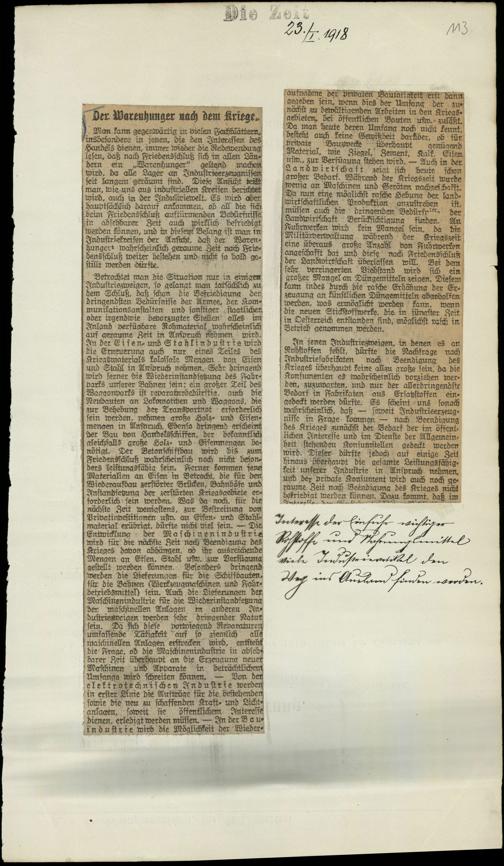 Die Zeit
23./I. 1918
113
Der Warenhunger nach dem Kriege.
Man kann gegenwärtig in vielen Fachblättern,
insbesondere in jenen, die den Interessen des
Handels dienen, immer wieder die Redewendung
lesen, daß nach Friedensschluß sich in allen Län-
dern ein „Warenhunger“ geltend machen
wird, da alle Lager an Industrieerzeugnissen
seit langem geräumt sind. Diese Ansicht teilt
man, wie uns aus industriellen Kreisen berichtet
wird, auch in der Industriewelt. Es wird aber
hauptsächlich darauf ankommen, ob all die sich
beim Friedensschluß auftürmenden Bedürfnisse
in absehbarer Zeit auch wirklich befriedigt
werden können, und in dieser Belang ist man in
Industriekreisen der Ansicht, daß der Waren-
hunger wahrscheinlich geraume Zeit nach Frie-
densschluß weiter bestehen und nicht so bald ge-
stillt werden dürfte.
Betrachtet man die Situation nur in einigen
Industriezweigen, so gelangt man tatsächlich zu
dem Schluß, daß schon die Befriedigung der
dringendsten Bedürfnisse der Armee, der Kom-
munikationsanstalten und sonstiger staatlicher
oder irgendwie bevorzugter Stellen alles im
Inland verfügbare Rohmaterial wahrscheinlich
auf geraume Zeit in Anspruch nehmen wird.
In der Eisen- und Stahlindustrie wird
die Erneuerung auch nur eines Teiles des
Kriegsmaterials kolossale Mengen von Eisen
und Stahl in Anspruch nehmen. Sehr dringend
wird ferner die Wiederinstandsetzung des Fahr-
parks unserer Bahnen sein; ein großer Teil des
Waggonparks ist reparaturbedürftig, auch die
Neubauten an Lokomotiven und Waggons, die
zur Behebung der Transportnot erforderlich
sein werden, nehmen große Holz- und Eisen-
mengen in Anspruch. Ebenso dringend erscheint
der Bau von Handelsschiffen, der bekanntlich
gleichfalls große Holz- und Eisenmengen be-
nötigt. Der Betonschiffbau wird bis zum
Friedensschluß wahrscheinlich noch nicht beson-
ders leistungsfähig sein. Ferner kommen jene
Materialien an Eisen in Betracht, die für den
Wiederaufbau zerstörter Brücken, Bahnhöfe und
Instandsetzung der zerstörten Kriegsgebiete er-
forderlich sein werden. Was da noch, für die
nächste Zeit wenigstens, zur Bestreitung von
Privatinvestitionen usw. an Eisen- und Stahl-
material erübrigt, dürfte nicht viel sein. — Die
Entwicklung der Maschinenindustrie
wird für die nächste Zeit nach Beendigung des
Krieges davon abhängen, ob ihr ausreichende
Mengen an Eisen, Stahl usw. zur Verfügung
gestellt werden können. Besonders dringend
werden die Lieferungen für die Schiffbauten,
für die Bahnen (Werkzeugmaschinen und Fahr-
betriebsmittel) sein. Auch die Lieferungen der
Maschinenindustrie für die Wiederinstandsetzung
der maschinellen Anlagen in anderen In-
dustriezweigen werden sehr dringender Natur
sein. Da sich diese vorwiegend Reparaturen
umfassende Tätigkeit auf so ziemlich alle
maschinellen Anlagen erstrecken wird, entsteht
die Frage, ob die Maschinenindustrie in abseh-
barer Zeit überhaupt an die Erzeugung neuer
Maschinen und Apparate in beträchtlichem
Umfange wird schreiten können. — Von der
elektrotechnischen Industrie werden
in erster Linie die Aufträge für die bestehenden
sowie die neu zu schaffenden Kraft- und Licht-
anlagen, soweit sie öffentlichem Interesse
dienen, erledigt werden müssen. — In der Bau-
industrie wird die Möglichkeit der Wieder-
aufnahme der privaten Bautätigkeit erst dann
gegeben sein, wenn dies der Umfang der zu-
nächst zu bewältigenden Arbeiten in den Kriegs-
gebieten, bei öffentlichen Bauten usw. zuläßt.
Da man heute deren Umfang noch nicht kennt,
besteht auch keine Gewißheit darüber, ob für
private Bauzwecke überhaupt genügend
Material, wie Ziegel, Zement, Kalk, Eisen
usw., zur Verfügung stehen wird. — Auch in der
Landwirtschaft zeigt sich heute schon
großer Bedarf. Während der Kriegszeit wurde
wenig an Maschinen und Geräten nachgeschafft.
Da nun eine möglichst rasche Hebung der land-
wirtschaftlichen Produktion anzustreben ist,
müssen auch die dringenden Bedürfnisse der
Landwirtschaft Berücksichtigung finden. An
Fuhrwerken wird kein Mangel sein, da die
Militärverwaltung während der Kriegszeit
eine überaus große Anzahl von Fuhrwerken
angeschafft hat und diese nach Friedensschluß
der Landwirtschaft überlassen will. Bei dem
sehr verringerten Viehstand wird sich ein
großer Mangel an Düngemitteln zeigen. Diesem
kann indes durch die rasche Erhöhung der Er-
zeugung an künstlichen Düngemitteln abgeholfen
werden, was ermöglicht werden kann, wenn
die neuen Stickstoffwerke, die in jünster Zeit
in Oesterreich entstanden sind, möglichst rasch in
Betrieb genommen werden.
In jenen Industriezweigen, in denen es an
Rohstoffen fehlt, dürfte die Nachfrage nach
Industriefabrikaten nach Beendigung des
Krieges überhaupt keine allzu große sein, da die
Konsumenten es wahrscheinlich vorziehen wer-
den, zuzuwarten, und nur der allerdringendste
Bedarf in Fabrikaten aus Ersatzstoffen ein-
gedeckt werden dürfte. Es scheint uns sonach
wahrscheinlich, daß — soweit Industrieerzeug-
nisse in Frage kommen — nach Beendigung
des Krieges zunächst der Bedarf der im öffent-
lichen Interesse und im Dienste der Allgemein-
heit stehenden Konsumstellen gedeckt werden
wird. Dieser dürfte jedoch auf einige Zeit
hinaus überhaupt die gesamte Leistungsfähig-
keit unserer Industrie in Anspruch nehmen,
und der private Konsument wird auch noch ge-
raume Zeit nach Beendigung des Krieges nicht
befriedigt werden können. Dazu kommt, daß im
Interesse der Einfuhr wichtiger
Rohstoffe und Nahrungsmittel
viele Industrieartikel den
Weg ins Ausland finden werden.